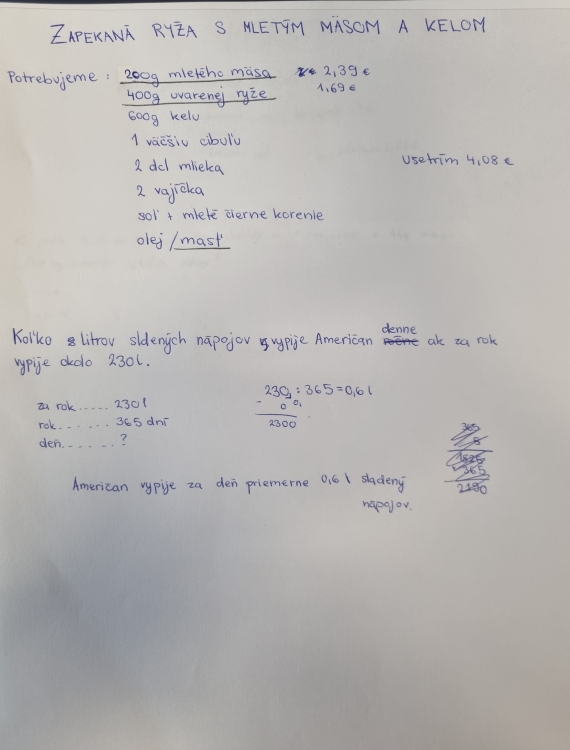 ZAPEKANÁ RYŽA S MLETÝM MÄSOM A KELOM
Potrebujeme : 200g mletého mäsa 2,39 €
400g uvarenej ryže 1,69 €
600g kelu
1 väčšiu cibuľu
2 dcl mlieka
Usetrím 4,08 €
2 vajíčka
soľ + mleté čierne korenie
olej / masť
Koľko litrov sldených nápojov vypije Američan denne ak za rok
vypije okolo 230 l.
za rok ..... 230 l
rok ...... 365 dní
deň ...... ?
230, : 365 = 0,6 l
- 0 0,
2300
365
5
1825
365
2190
American vypije za deň priemerne 0,6 l sladený
nápojov.